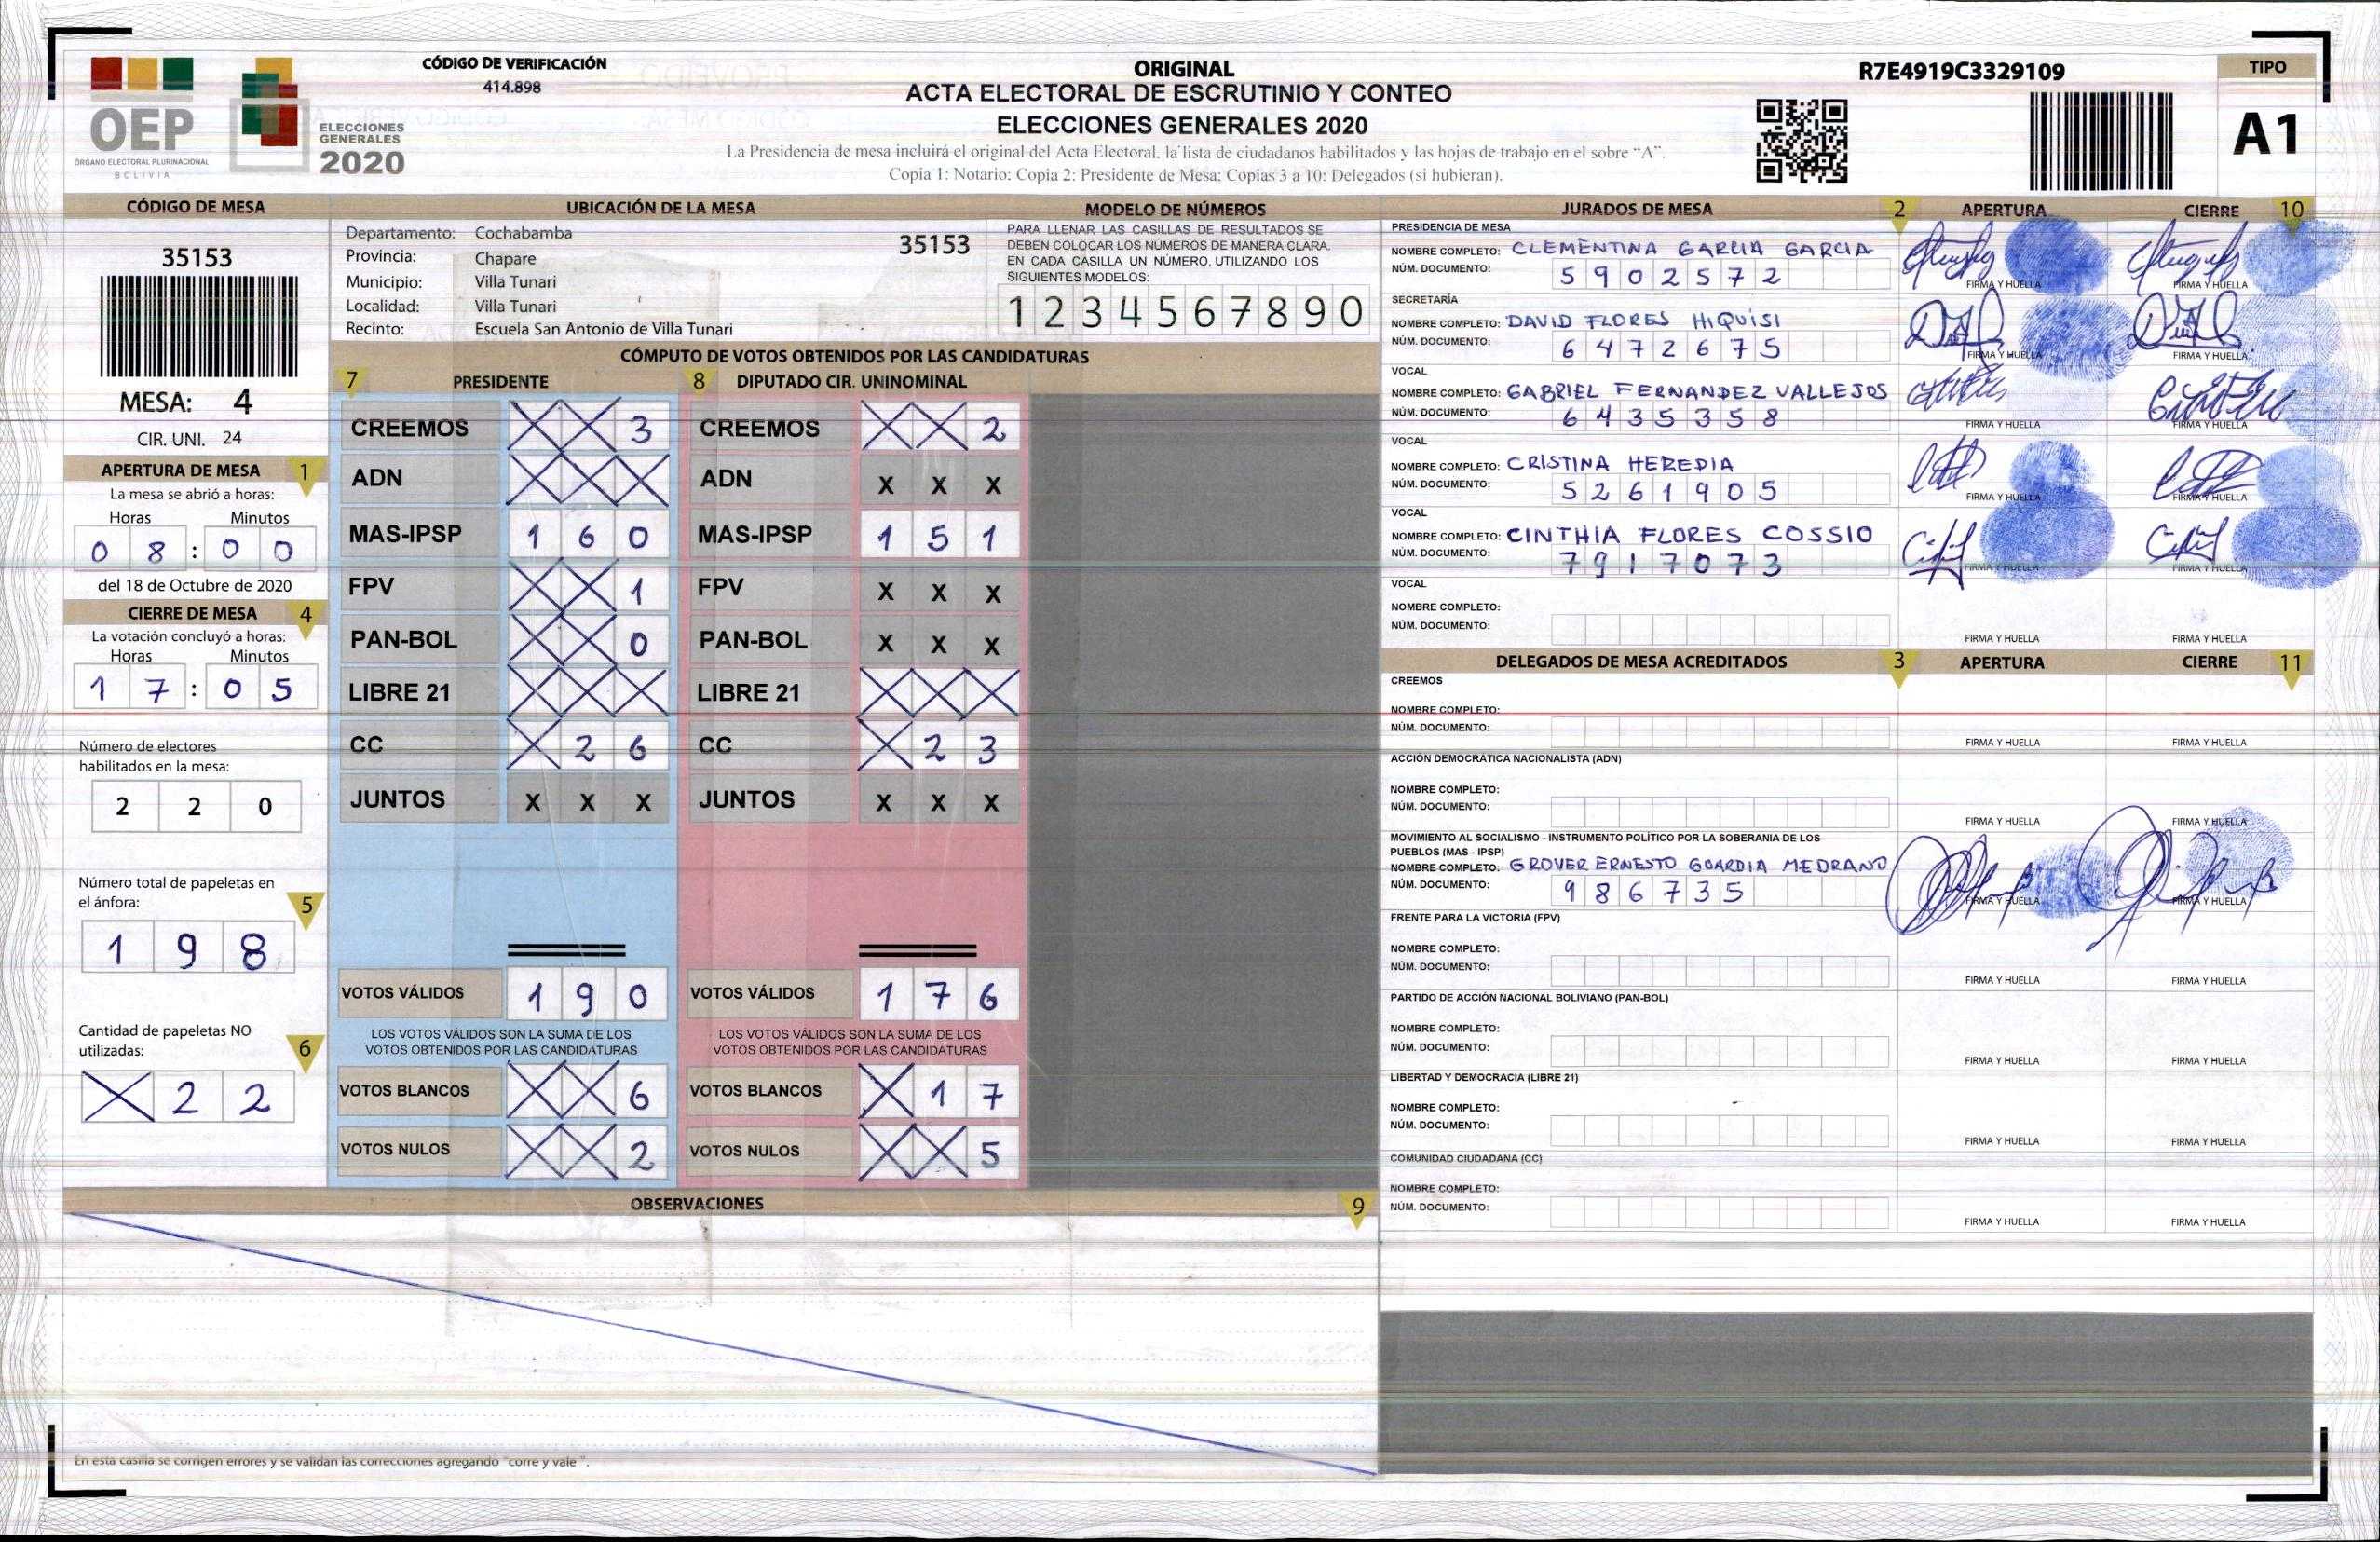 CÓDIGO DE VERIFICACIÓN
414.898
OEP
ÓRGANO ELECTORAL PLURINACIONAL
BOLIVIA
ELECCIONES
GENERALES
2020
ORIGINAL
ACTA ELECTORAL DE ESCRUTINIO Y CONTEO
ELECCIONES GENERALES 2020
La Presidencia de mesa incluirá el original del Acta Electoral, la lista de ciudadanos habilitados y las hojas de trabajo en el sobre "A".
Copia 1: Notario; Copia 2: Presidente de Mesa; Copias 3 a 10: Delegados (si hubieran).
R7E4919C3329109
TIPO
A1
CÓDIGO DE MESA
35153
MESA: 4
CIR. UNI. 24
APERTURA DE MESA 1
La mesa se abrió a horas:
Horas Minutos
0 8 : 0 0
del 18 de Octubre de 2020
CIERRE DE MESA 4
La votación concluyó a horas:
Horas Minutos
1 7 : 0 5
Número de electores
habilitados en la mesa:
2 2 0
Número total de papeletas en
el ánfora: 5
1 9 8
Cantidad de papeletas NO
utilizadas: 6
X 2 2
UBICACIÓN DE LA MESA
Departamento: Cochabamba
35153
Provincia: Chapare
Municipio: Villa Tunari
Localidad: Villa Tunari
Recinto: Escuela San Antonio de Villa Tunari
MODELO DE NÚMEROS
PARA LLENAR LAS CASILLAS DE RESULTADOS SE
DEBEN COLOCAR LOS NÚMEROS DE MANERA CLARA.
EN CADA CASILLA UN NÚMERO, UTILIZANDO LOS
SIGUIENTES MODELOS:
1 2 3 4 5 6 7 8 9 0
CÓMPUTO DE VOTOS OBTENIDOS POR LAS CANDIDATURAS
7 PRESIDENTE 8 DIPUTADO CIR. UNINOMINAL
CREEMOS X X 3 CREEMOS X X 2
ADN X X X ADN X X X
MAS-IPSP 1 6 0 MAS-IPSP 1 5 1
FPV X X 1 FPV X X X
PAN-BOL X X 0 PAN-BOL X X X
LIBRE 21 X X X LIBRE 21 X X X
CC X 2 6 CC X 2 3
JUNTOS X X X JUNTOS X X X
VOTOS VÁLIDOS 1 9 0 VOTOS VÁLIDOS 1 7 6
LOS VOTOS VÁLIDOS SON LA SUMA DE LOS LOS VOTOS VÁLIDOS SON LA SUMA DE LOS
VOTOS OBTENIDOS POR LAS CANDIDATURAS VOTOS OBTENIDOS POR LAS CANDIDATURAS
VOTOS BLANCOS X X 6 VOTOS BLANCOS X 1 7
VOTOS NULOS X X 2 VOTOS NULOS X X 5
OBSERVACIONES 9
En esta casilla se corrigen errores y se validan las correcciones agregando "corre y vale".
JURADOS DE MESA 2 APERTURA CIERRE 10
PRESIDENCIA DE MESA
NOMBRE COMPLETO: CLEMENTINA GARCIA GARCIA
NÚM. DOCUMENTO: 5 9 0 2 5 7 2
FIRMA Y HUELLA FIRMA Y HUELLA
SECRETARÍA
NOMBRE COMPLETO: DAVID FLORES HIQUISI
NÚM. DOCUMENTO: 6 4 7 2 6 7 5
FIRMA Y HUELLA FIRMA Y HUELLA
VOCAL
NOMBRE COMPLETO: GABRIEL FERNANDEZ VALLEJOS
NÚM. DOCUMENTO: 6 4 3 5 3 5 8
FIRMA Y HUELLA FIRMA Y HUELLA
VOCAL
NOMBRE COMPLETO: CRISTINA HEREDIA
NÚM. DOCUMENTO: 5 2 6 1 9 0 5
FIRMA Y HUELLA FIRMA Y HUELLA
VOCAL
NOMBRE COMPLETO: CINTHIA FLORES COSSIO
NÚM. DOCUMENTO: 7 9 1 7 0 7 3
FIRMA Y HUELLA FIRMA Y HUELLA
VOCAL
NOMBRE COMPLETO:
NÚM. DOCUMENTO:
FIRMA Y HUELLA FIRMA Y HUELLA
DELEGADOS DE MESA ACREDITADOS 3 APERTURA CIERRE 11
CREEMOS
NOMBRE COMPLETO:
NÚM. DOCUMENTO:
FIRMA Y HUELLA FIRMA Y HUELLA
ACCIÓN DEMOCRATICA NACIONALISTA (ADN)
NOMBRE COMPLETO:
NÚM. DOCUMENTO:
FIRMA Y HUELLA FIRMA Y HUELLA
MOVIMIENTO AL SOCIALISMO - INSTRUMENTO POLÍTICO POR LA SOBERANIA DE LOS
PUEBLOS (MAS - IPSP)
NOMBRE COMPLETO: GROVER ERNESTO GUARDIA MEDRANO
NÚM. DOCUMENTO: 9 8 6 7 3 5
FIRMA Y HUELLA FIRMA Y HUELLA
FRENTE PARA LA VICTORIA (FPV)
NOMBRE COMPLETO:
NÚM. DOCUMENTO:
FIRMA Y HUELLA FIRMA Y HUELLA
PARTIDO DE ACCIÓN NACIONAL BOLIVIANO (PAN-BOL)
NOMBRE COMPLETO:
NÚM. DOCUMENTO:
FIRMA Y HUELLA FIRMA Y HUELLA
LIBERTAD Y DEMOCRACIA (LIBRE 21)
NOMBRE COMPLETO:
NÚM. DOCUMENTO:
FIRMA Y HUELLA FIRMA Y HUELLA
COMUNIDAD CIUDADANA (CC)
NOMBRE COMPLETO:
NÚM. DOCUMENTO:
FIRMA Y HUELLA FIRMA Y HUELLA